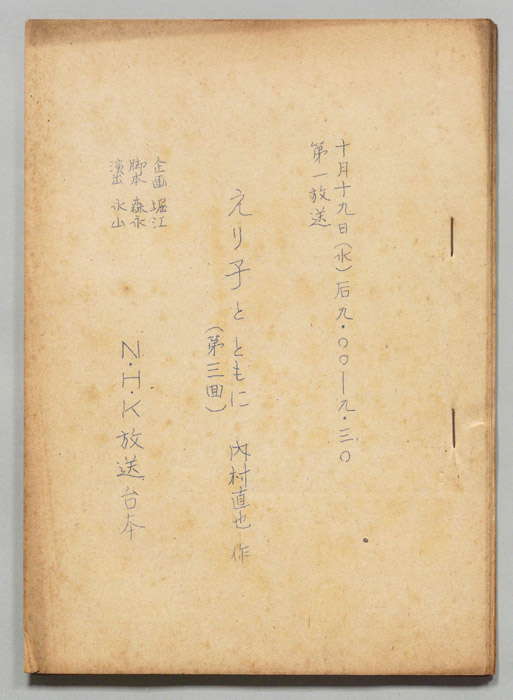 十月十九日(水)后九・〇〇―九・三〇
第一放送
えり子とともに 内村直也 作
(第三回)
企画 堀江
脚本 森永
演出 永山
N・H・K放送台本